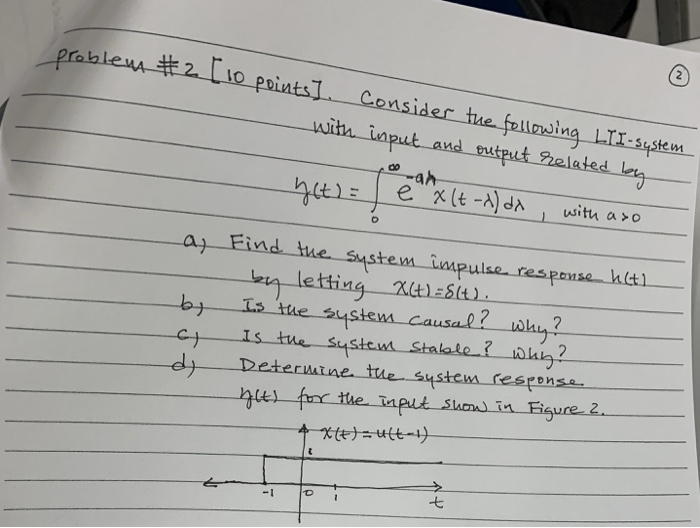 ②
problem #2 [10 points]. Consider the following LTI-system
with input and output related by
y(t) = ∫₀^∞ e^{-aλ} x(t-λ) dλ , with a>0
a) Find the system impulse response h(t)
by letting x(t)=δ(t).
b) Is the system causal? why?
c) Is the system stable? why?
d) Determine the system response
y(t) for the input show in Figure 2.
x(t)=u(t-1)
1
-1 0 1 t